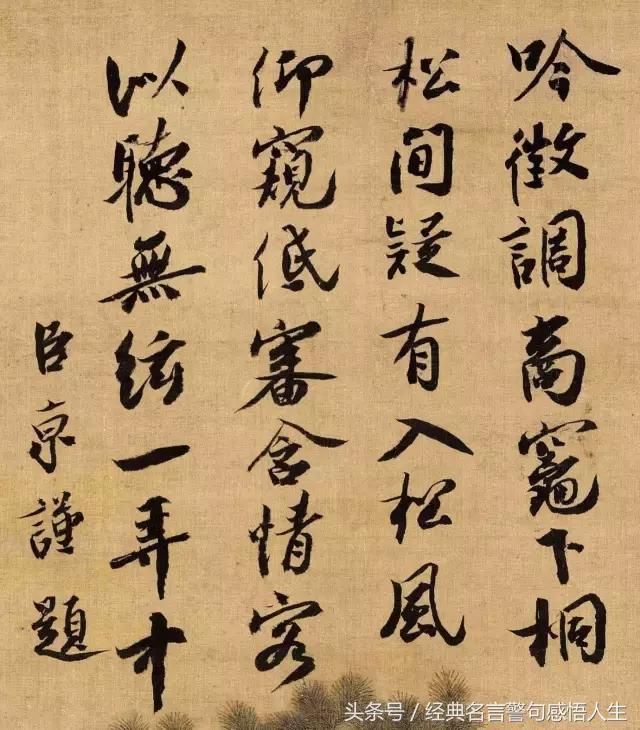 吟徵調商竈下桐
松間疑有入松風
仰窺低審含情客
以聽無絃一弄中
臣京謹題
头条号／经典名言警句感悟人生